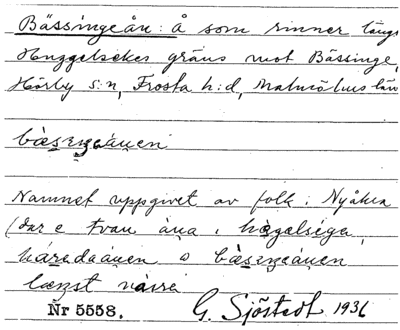 Bässingeån: å som rinner längs
Huggelsekes gräns mot Bässinge,
Hörby s:n, Frosta h:d, Malmöhus län
bæsɛŋeáu̯en
Namnet uppgivet av folk i Nyåkra
(dar e tvau áu̯a i høgelsega,
háredaáu̯en o bæsɛŋeáu̯en
længst nårre
Nr 5558. G. Sjöstedt 1936